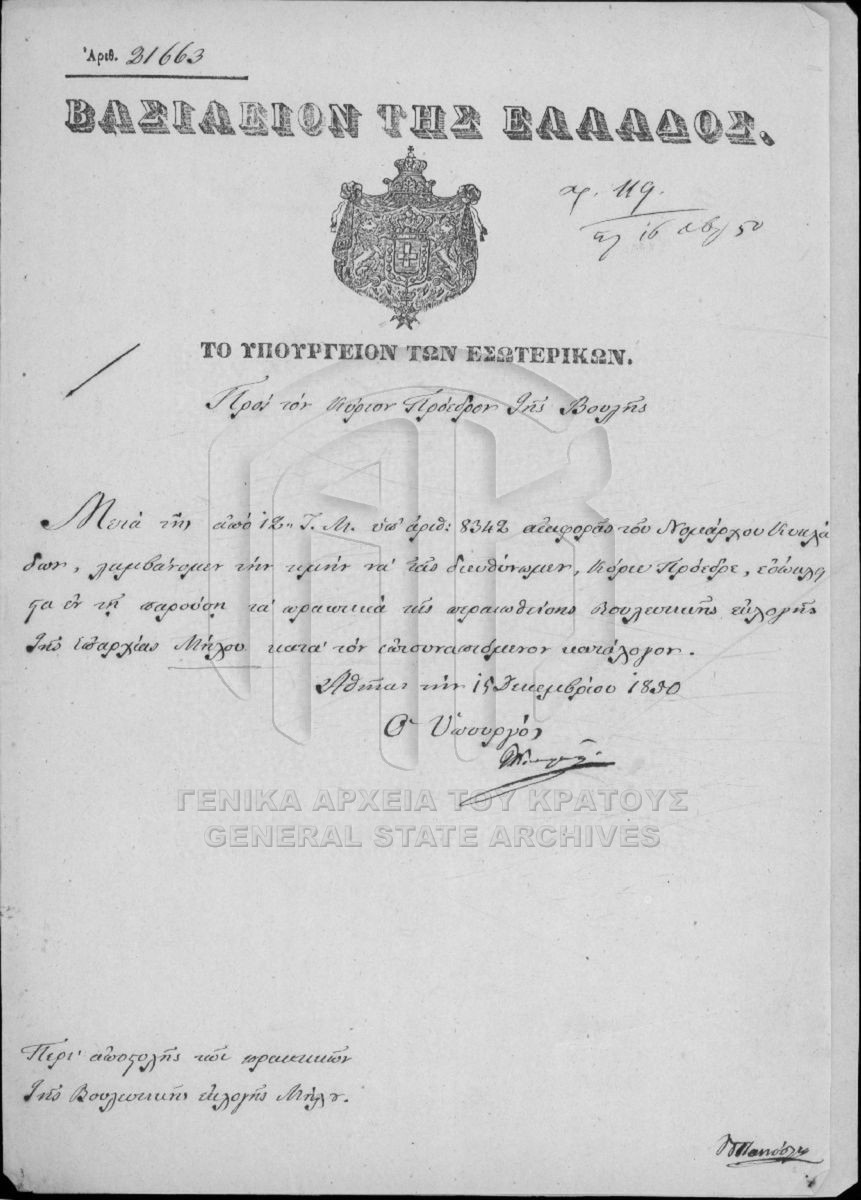 Ἀριθ. 21663
ΒΑΣΙΛΕΙΟΝ ΤΗΣ ΕΛΛΑΔΟΣ.
119.
16 50
ΤΟ ΥΠΟΥΡΓΕΙΟΝ ΤΩΝ ΕΣΩΤΕΡΙΚΩΝ.
Πρὸς τὸν Κύριον Πρόεδρον τῆς Βουλῆς
Μετὰ τῆς ἀπὸ 12 Ἰ. Μ. ὑπ' ἀριθ: 8342 ἀναφορᾶς τοῦ Νομάρχου Κυκλά
δων, λαμβάνομεν τὴν τιμὴν νὰ σᾶς διευθύνωμεν, Κύριε Πρόεδρε, ἐσώκλει
στα ἐν τῇ παρούσῃ τὰ πρακτικὰ τῆς Βουλευτικῆς ἐκλογῆς
τῆς Ἐπαρχίας Μήλου κατὰ τὸν ἐπισυναπτόμενον κατάλογον.
Ἀθῆναι τὴν 15 Δεκεμβρίου 1850
Ὁ Ὑπουργὸς
ΓΕΝΙΚΑ ΑΡΧΕΙΑ ΤΟΥ ΚΡΑΤΟΥΣ
GENERAL STATE ARCHIVES
Περὶ ἀποστολῆς τῶν πρακτικῶν
τῆς Βουλευτικῆς ἐκλογῆς Μήλου.